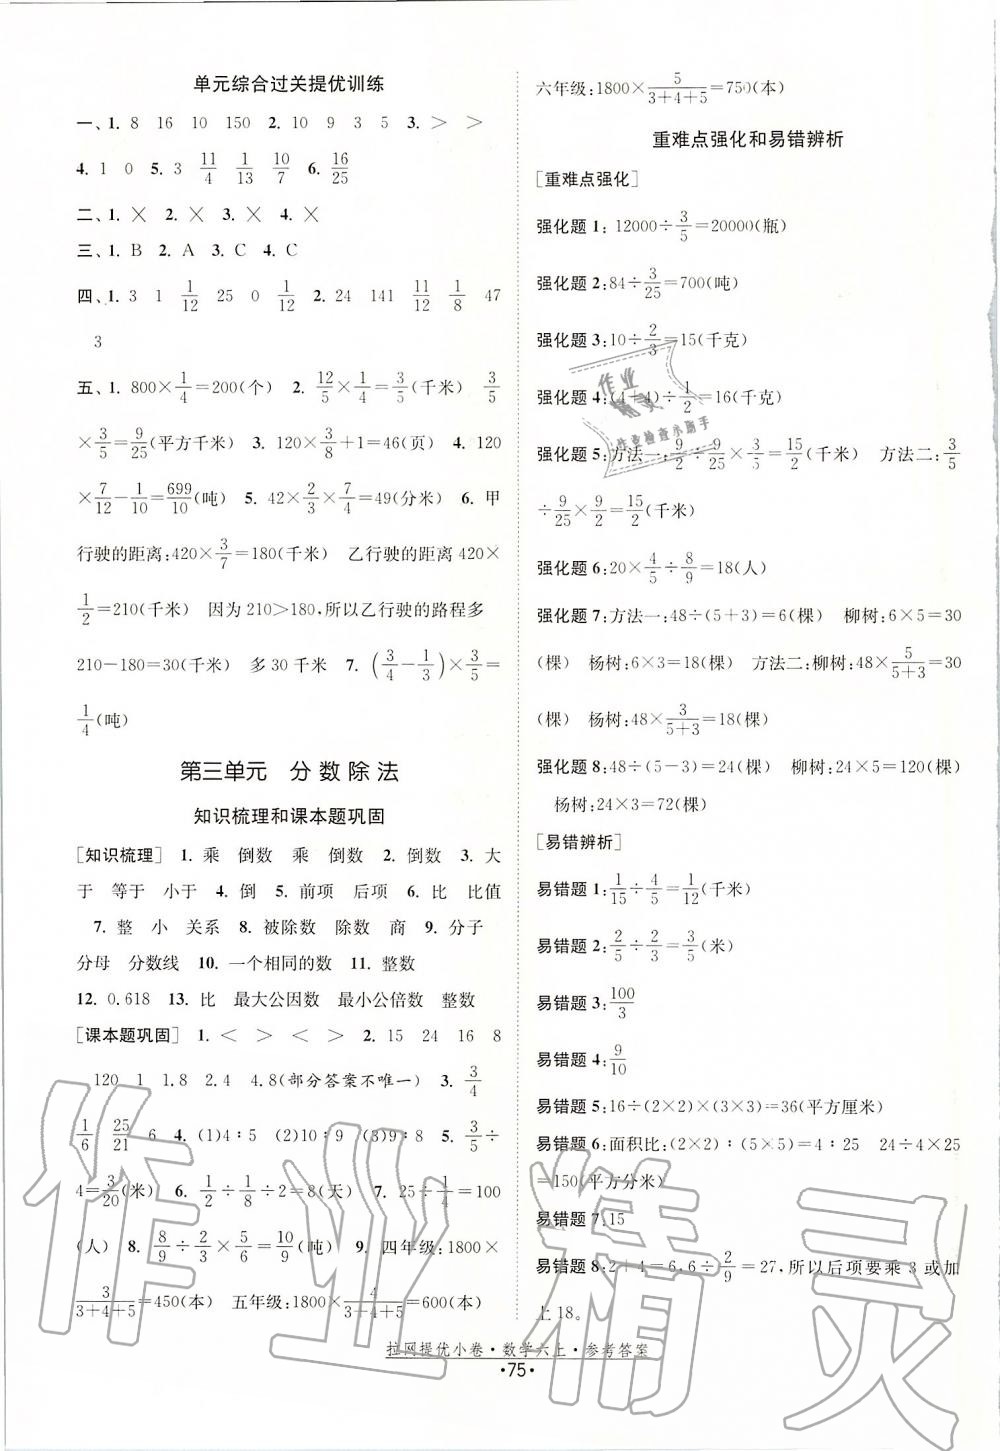 单元综合过关提优训练
一、1. 8 16 10 150 2. 10 9 3 5 3. > >
4. 1 0 5. 3 11/4 1/13 10/7 6. 16/25
二、1. × 2. × 3. × 4. ×
三、1. B 2. A 3. C 4. C
四、1. 3 1 1/12 25 0 1/12 2. 24 141 11/12 1/8 47
3
五、1. 800×1/4=200(个) 2. 12/5×1/4=3/5(千米) 3/5
×3/5=9/25(平方千米) 3. 120×3/8+1=46(页) 4. 120
×7/12-1/10=699/10(吨) 5. 42×2/3×7/4=49(分米) 6. 甲
行驶的距离:420×3/7=180(千米) 乙行驶的距离:420×
1/2=210(千米) 因为210>180,所以乙行驶的路程多
210-180=30(千米) 多30千米 7. (3/4-1/3)×3/5=
1/4(吨)
第三单元 分数除法
知识梳理和课本题巩固
[知识梳理] 1. 乘 倒数 乘 倒数 2. 倒数 3. 大
于 等于 小于 4. 倒 5. 前项 后项 6. 比 比值
7. 整 小 关系 8. 被除数 除数 商 9. 分子
分母 分数线 10. 一个相同的数 11. 整数
12. 0.618 13. 比 最大公因数 最小公倍数 整数
[课本题巩固] 1. < > < > 2. 15 24 16 8
120 1 1.8 2.4 4.8(部分答案不唯一) 3. 3/4
1/6 25/21 6 4. (1)4∶5 (2)10∶9 (3)9∶8 5. 3/5÷
4=3/20(米) 6. 1/2÷1/8÷2=8(天) 7. 25÷1/4=100
(人) 8. 8/9÷2/3×5/6=10/9(吨) 9. 四年级:1800×
3/(3+4+5)=450(本) 五年级:1800×4/(3+4+5)=600(本)
六年级:1800×5/(3+4+5)=750(本)
重难点强化和易错辨析
[重难点强化]
强化题1: 12000÷3/5=20000(瓶)
强化题2:84÷3/25=700(吨)
强化题3:10÷2/3=15(千克)
强化题4:(4+4)÷1/2=16(千克)
强化题5:方法一:9/2÷9/25×3/5=15/2(千米) 方法二:3/5
÷9/25×9/2=15/2(千米)
强化题6:20×4/5÷8/9=18(人)
强化题7:方法一:48÷(5+3)=6(棵) 柳树:6×5=30
(棵) 杨树:6×3=18(棵) 方法二:柳树:48×5/(5+3)=30
(棵) 杨树:48×3/(5+3)=18(棵)
强化题8:48÷(5-3)=24(棵) 柳树:24×5=120(棵)
杨树:24×3=72(棵)
[易错辨析]
易错题1:1/15÷4/5=1/12(千米)
易错题2:2/5÷2/3=3/5(米)
易错题3:100/3
易错题4:9/10
易错题5:16÷(2×2)×(3×3)=36(平方厘米)
易错题6:面积比:(2×2)∶(5×5)=4∶25 24÷4×25
=150(平方分米)
易错题7:15
易错题8:2+4=6,6÷2/9=27,所以后项要乘3或加
上18。
拉网提优小卷·数学六上·参考答案
·75·
作业
精灵
作业检查小助手
作业精灵